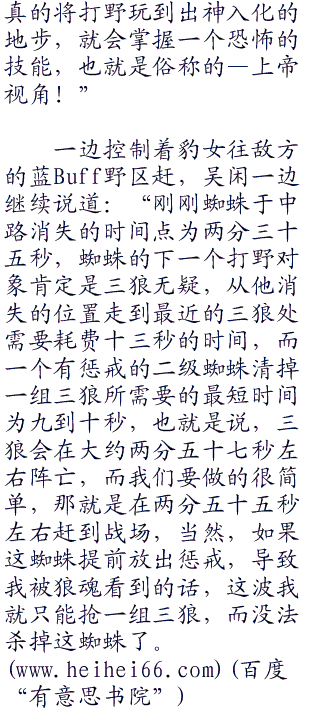 真的将打野玩到出神入化的
地步，就会掌握一个恐怖的
技能，也就是俗称的—上帝
视角！”
一边控制着豹女往敌方
的蓝Buff野区赶，吴闲一边
继续说道：“刚刚蜘蛛于中
路消失的时间点为两分三十
五秒，蜘蛛的下一个打野对
象肯定是三狼无疑，从他消
失的位置走到最近的三狼处
需要耗费十三秒的时间，而
一个有惩戒的二级蜘蛛清掉
一组三狼所需要的最短时间
为九到十秒，也就是说，三
狼会在大约两分五十七秒左
右阵亡，而我们要做的很简
单，那就是在两分五十五秒
左右赶到战场，当然，如果
这蜘蛛提前放出惩戒，导致
我被狼魂看到的话，这波我
就只能抢一组三狼，而没法
杀掉这蜘蛛了。
(www.heihei66.com)(百度
“有意思书院”)